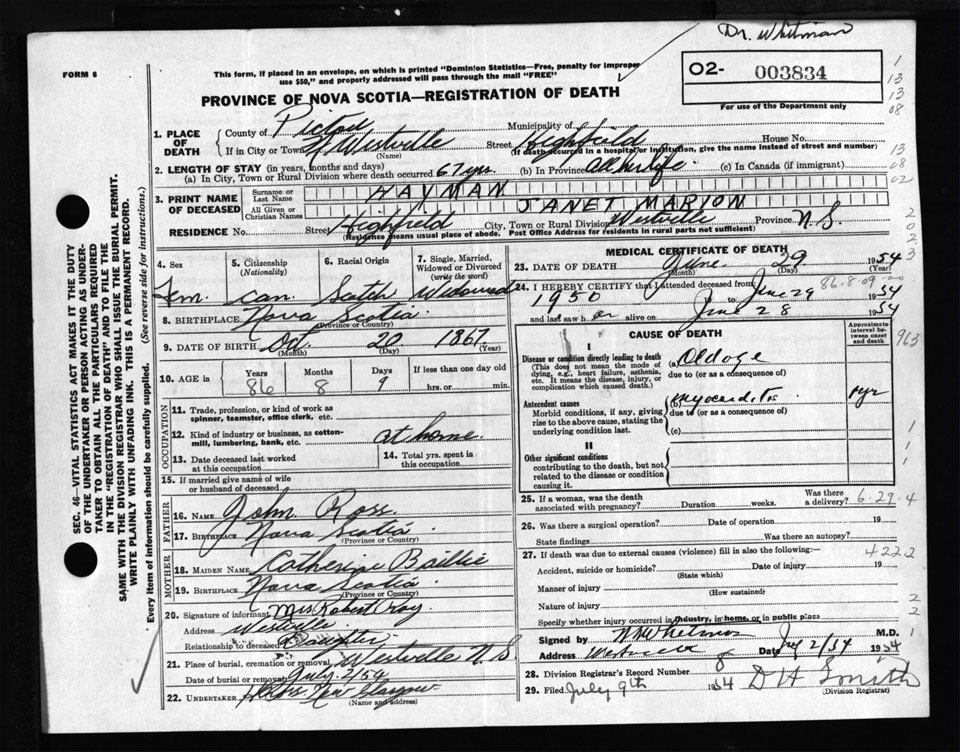 Dr. Whitman
FORM 6
This form, if placed in an envelope, on which is printed "Dominion Statistics—Free, penalty for improper
use $50," and properly addressed will pass through the mail "FREE"
O2- 003834
For use of the Department only
PROVINCE OF NOVA SCOTIA—REGISTRATION OF DEATH
1. PLACE OF DEATH
County of Pictou Municipality of
If in City or Town Westville Street Highfield House No.
(Name) (If death occurred in a hospital or institution, give the name instead of street and number)
2. LENGTH OF STAY (in years, months and days)
(a) In City, Town or Rural Division where death occurred 67 yrs. (b) In Province all her life. (c) In Canada (if immigrant)
3. PRINT NAME OF DECEASED
Surname or Last Name HAYMAN
All Given or Christian Names JANET MARION
RESIDENCE No. Street Highfield City, Town or Rural Division Westville Province N.S.
(Residence means usual place of abode. Post Office Address for residents in rural parts not sufficient)
4. Sex
Fem.
5. Citizenship
(Nationality)
Can.
6. Racial Origin
Scotch
7. Single, Married,
Widowed or Divorced
(write the word)
Widowed
8. BIRTHPLACE Nova Scotia
(Province or Country)
9. DATE OF BIRTH Oct. 20 1867
(Month) (Day) (Year)
10. AGE in
Years Months Days If less than one day old
86 8 9 hrs. or min.
OCCUPATION
11. Trade, profession, or kind of work as
spinner, teamster, office clerk, etc.
12. Kind of industry or business, as cotton-
mill, lumbering, bank, etc. at home.
13. Date deceased last worked
at this occupation
14. Total yrs. spent in
this occupation
15. If married give name of wife
or husband of deceased
FATHER
16. NAME John Ross
17. BIRTHPLACE Nova Scotia
(Province or Country)
MOTHER
18. MAIDEN NAME Catherine Baillie
19. BIRTHPLACE Nova Scotia
(Province or Country)
20. Signature of informant Mrs. Robert Roy
Address Westville
Relationship to deceased Daughter.
21. Place of burial, cremation or removal Westville N.S.
Date of burial or removal July 2/54
22. UNDERTAKER New Glasgow
(Name and address)
MEDICAL CERTIFICATE OF DEATH
23. DATE OF DEATH June 29 1954
(Month) (Day) (Year)
86-8-09
24. I HEREBY CERTIFY that I attended deceased from
1950 to June 29 1954
and last saw h er alive on June 28 1954
CAUSE OF DEATH
Approximate
interval be-
tween onset
and death
I
Disease or condition directly leading to death
(This does not mean the mode of
dying, e.g., heart failure, asthenia,
etc. It means the disease, injury, or
complication which caused death.)
(a) Old age
due to (or as a consequence of)
Antecedent causes
Morbid conditions, if any, giving
rise to the above cause, stating the
underlying condition last.
(b) Myocarditis yr
due to (or as a consequence of)
(c)
II
Other significant conditions
contributing to the death, but not
related to the disease or condition
causing it.
25. If a woman, was the death
associated with pregnancy? Duration weeks. Was there
a delivery? 6-29-4
26. Was there a surgical operation? Date of operation 19
State findings Was there an autopsy?
27. If death was due to external causes (violence) fill in also the following:—
4222
Accident, suicide or homicide? Date of injury 19
(State which)
Manner of injury
(How sustained)
Nature of injury
Specify whether injury occurred in industry, in home, or in public place
Signed by M.D.
Address Westville Date July 2/54 1954
28. Division Registrar's Record Number 8
29. Filed July 9th 1954 D H Smith
(Division Registrar)
SEC. 46—VITAL STATISTICS ACT MAKES IT THE DUTY
OF THE UNDERTAKER OR PERSON ACTING AS UNDER-
TAKER TO OBTAIN ALL THE PARTICULARS REQUIRED
IN THE "REGISTRATION OF DEATH" AND TO FILE THE
SAME WITH THE DIVISION REGISTRAR WHO SHALL ISSUE THE BURIAL PERMIT.
WRITE PLAINLY WITH UNFADING INK. THIS IS A PERMANENT RECORD.
Every item of information should be carefully supplied. (See reverse side for instructions.)
1
13
13
08
13
08
02
2
0
2
3
963
1
1
2
2
1